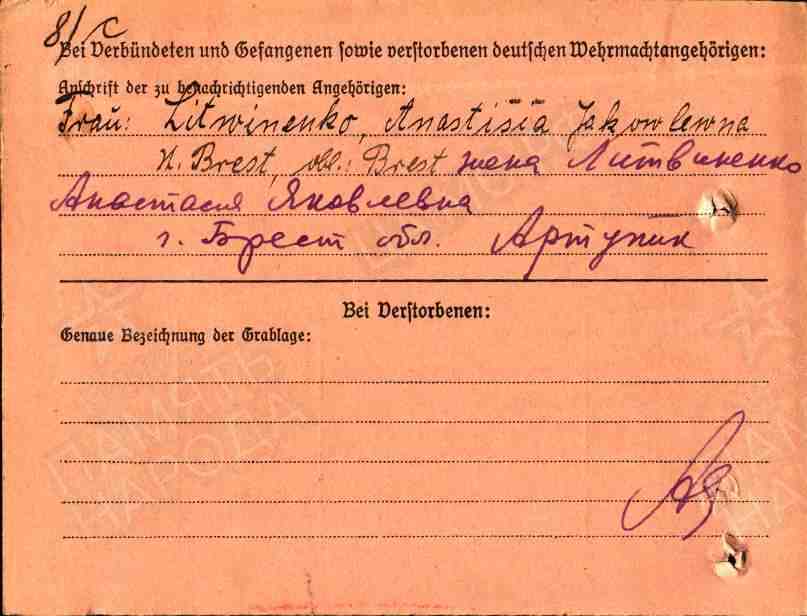 8/c
Bei Verbündeten und Gefangenen sowie verstorbenen deutschen Wehrmachtangehörigen:
Anschrift der zu benachrichtigenden Angehörigen:
Frau: Litwinenko, Anastisia Jakowlewna
N. Brest, obl.: Brest жена Литвиненко
Анастасия Яковлевна
г. Брест обл.
Bei Verstorbenen:
Genaue Bezeichnung der Grablage:
ПАМЯТЬ
НАРОДА